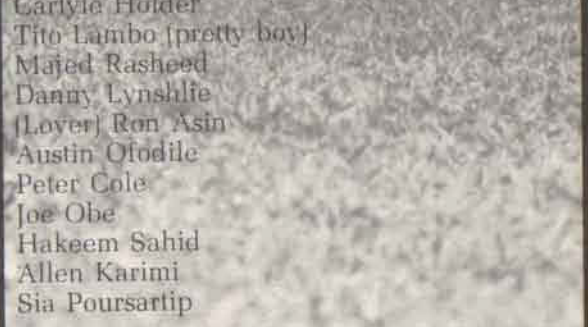 Carlyle Holder
Tito Lambo (pretty boy)
Majed Rasheed
Danny Lynshlie
(Lover) Ron Asin
Austin Ofodile
Peter Cole
Joe Obe
Hakeem Sahid
Allen Karimi
Sia Poursartip